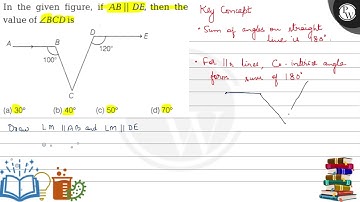 In the given figure, if AB || DE, then the
value of ∠BCD is
A
B
100°
C
D
120°
E
(a) 30° (b) 40° (c) 50° (d) 70°
Draw LM || AB and LM || DE
Key Concept
• Sum of angles on straight
line is 180°.
• For ||r lines, Co-interior angle
form sum of 180°